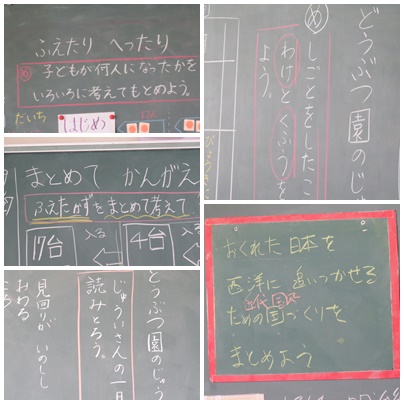 ふえたり へったり
め 子どもが何人になったかを
いろいろに考えてもとめよう。
だいち
はじめ
まとめて かんがえ
ふえたかずをまとめて考えて
17台
入る
4台
入る
どうぶつ園のじゅう
じゅういさんの一日
読みとろう。
見回りが いのしし
おわる
どうぶつ園のじ
め しごとをしたこ
わけとくふうを
よう。
おくれた日本を
西洋に追いつかせる
近代国家
ための国づくりを
まとめよう